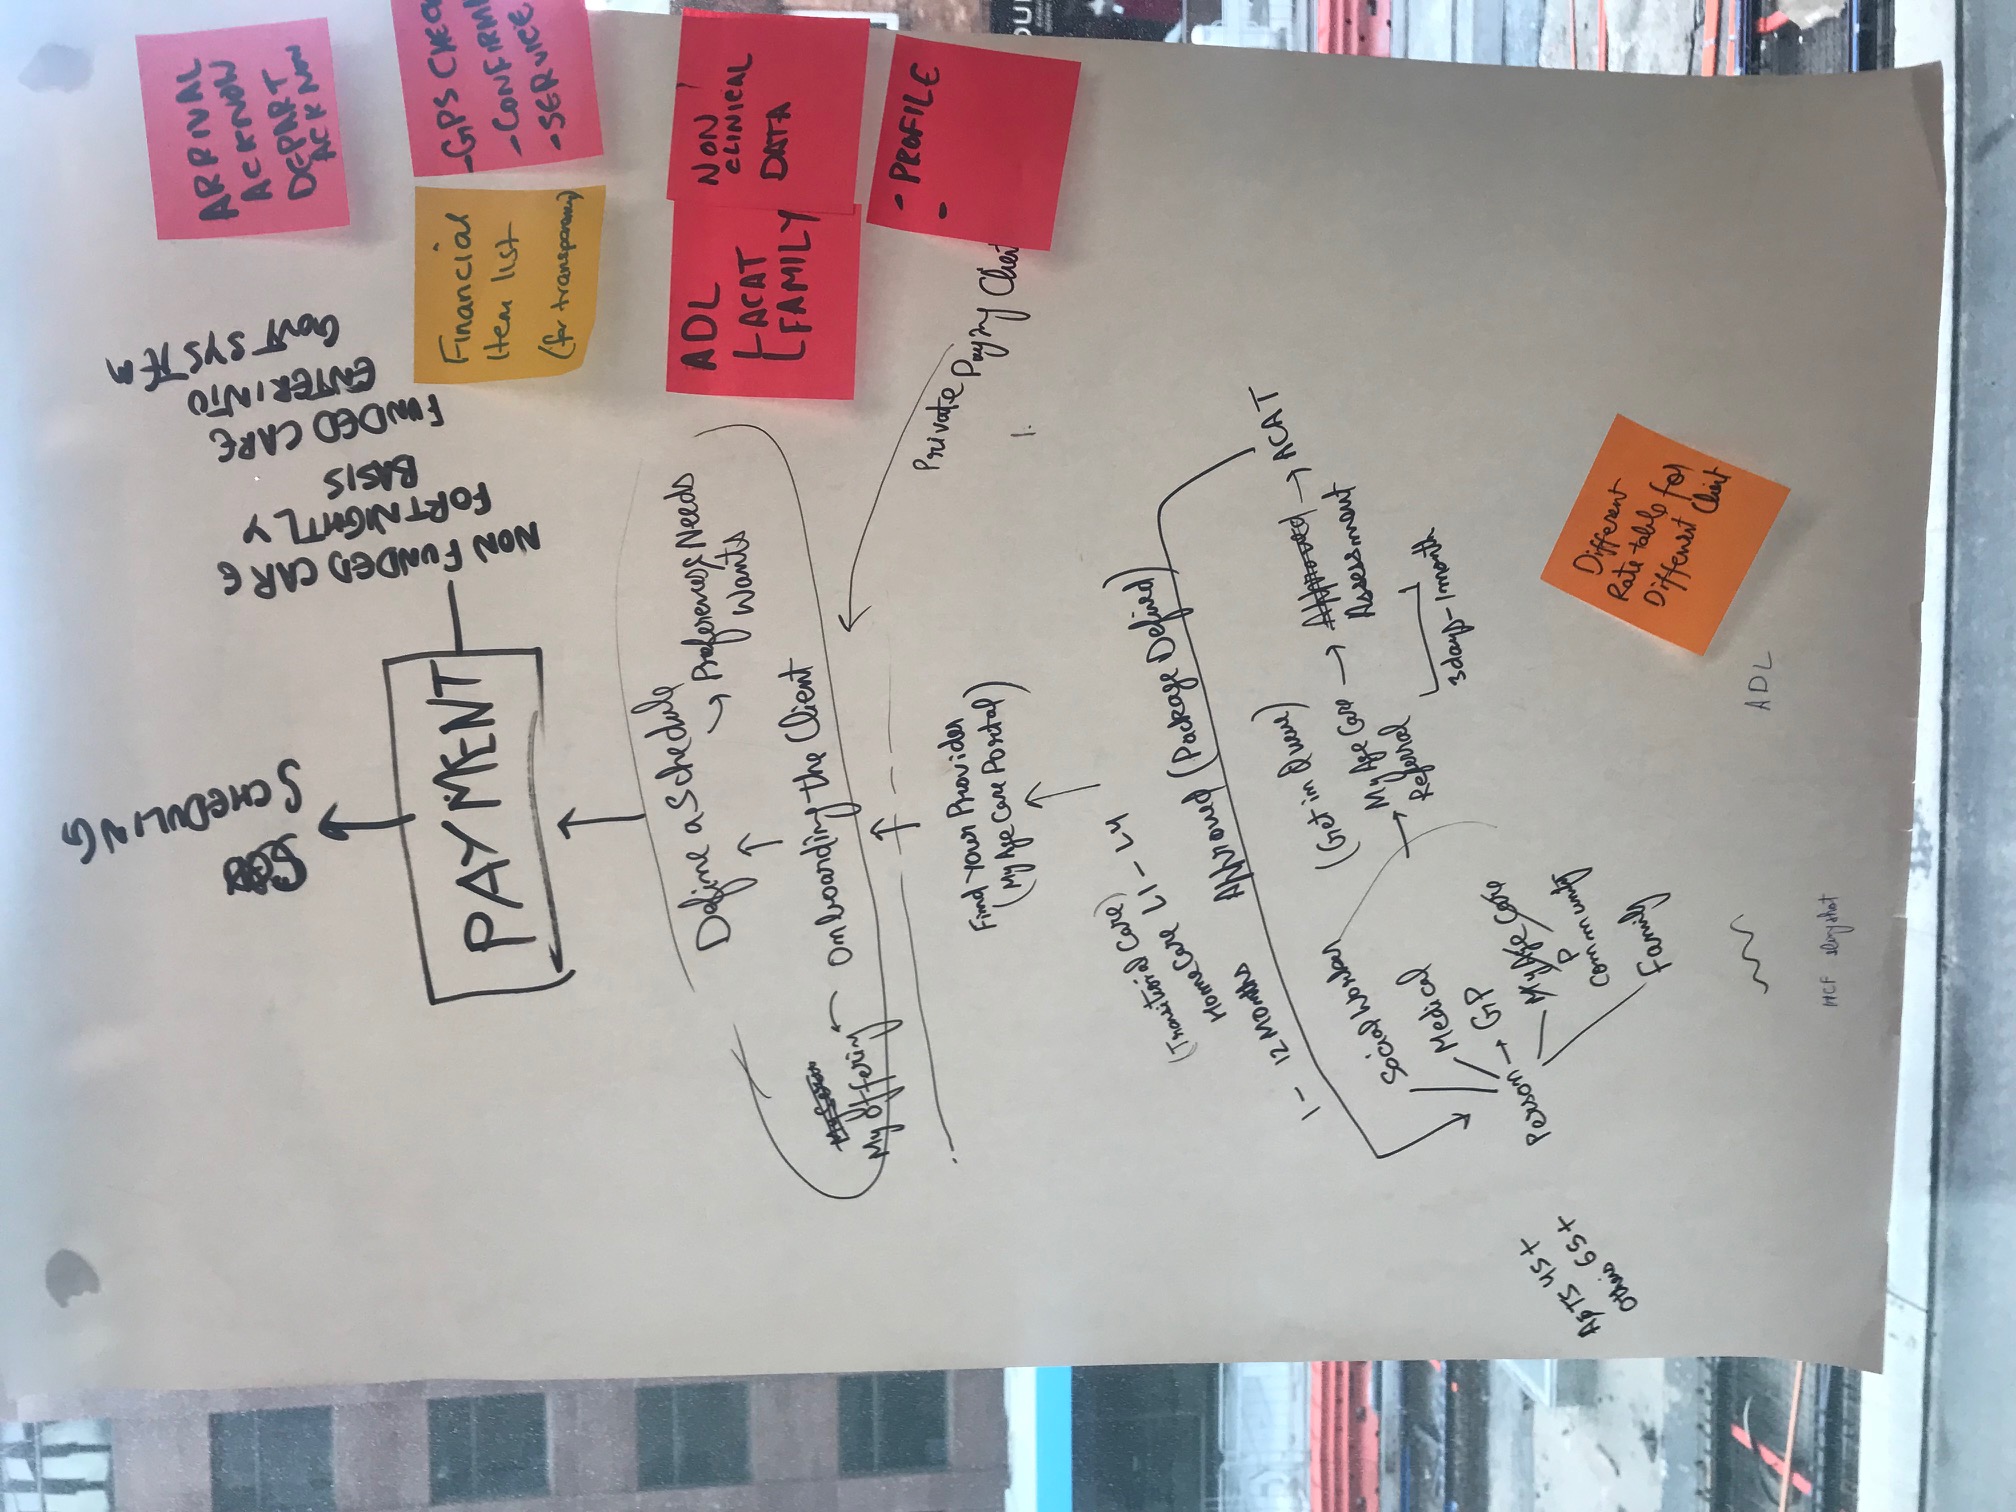 ARRIVAL
ACKNOW
DEPART
ACK NOW
-GPS CHECK
-CONFIRM
-SERVICE
Financial
Item list
(for transparency)
NON
CLINICAL
DATA
ADL
ACAT
FAMILY
- PROFILE
-
SCHEDULING
PAYMENT
NON FUNDED CARE
FORTNIGHTLY
BASIS
FUNDED CARE
ENTER INTO
GOVT SYSTEM
Define a Schedule
→ Preferences Needs
Wants
↑
My Offering ← Onboarding the Client
Private Paying Client
1.
Find your Provider
(My Age Care Portal)
(Transitional Care)
Home Care L1 - L4
1 - 12 Months
Approved (Package Defined)
(Get in Queue)
→ My Age Care → Assessment → ACAT
Referral
3days - 1month
Social Worker
Medical
Person → GP
My Age Care
Community
Family
APTS 45+
Others 65+
Different
Rate table for
Different Client
ADL
HCF